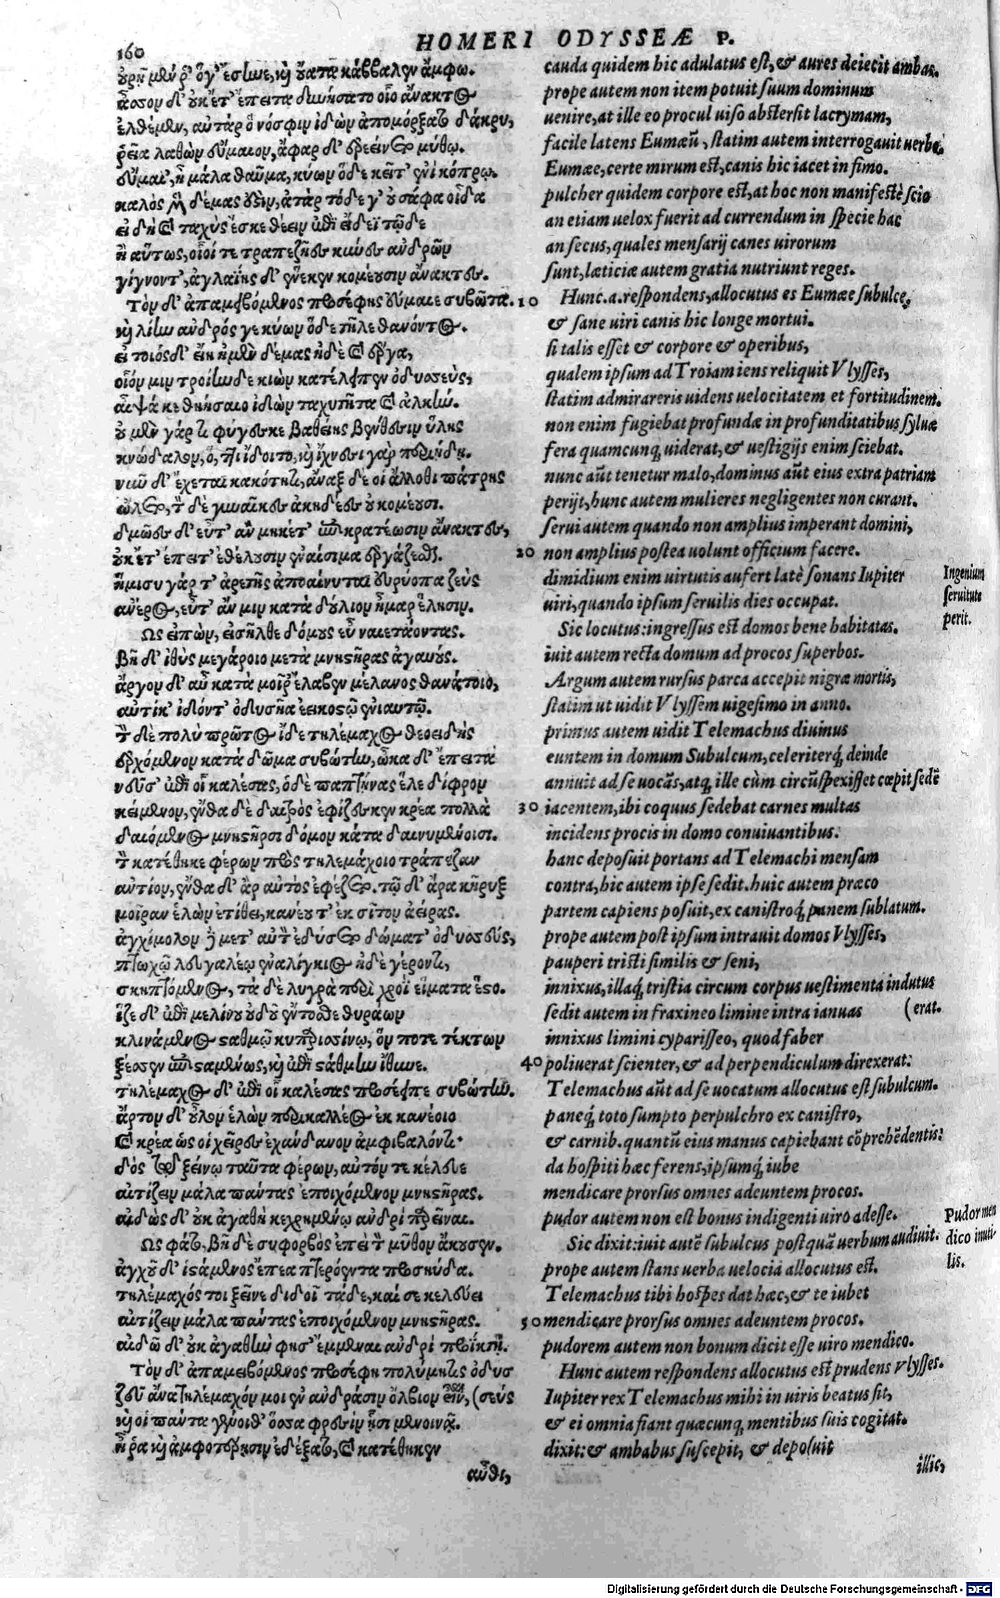 160
HOMERI ODYSSEÆ P.
οὐρῇ μὲν ῥ' ὅγ' ἔσηνε, καὶ οὔατα κάββαλεν ἄμφω.
ἆσσον δ' οὐκ ἔτ' ἔπειτα δυνήσατο οἷο ἄνακτος
ἐλθέμεν, αὐτὰρ ὁ νόσφιν ἰδὼν ἀπομόρξατο δάκρυ,
ῥεῖα λαθὼν εὔμαιον, ἄφαρ δ' ἐρεείνετο μύθῳ.
εὔμαι', ἦ μάλα θαῦμα, κύων ὅδε κεῖτ' ἐνὶ κόπρῳ.
καλὸς μὲν δέμας ἐστὶν, ἀτὰρ τόδε γ' οὐ σάφα οἶδα
εἰ δὴ καὶ ταχὺς ἔσκε θέειν ἐπὶ εἴδεϊ τῷδε
ἢ αὔτως, οἷοί τε τραπεζῆες κύνες ἀνδρῶν
γίγνοντ', ἀγλαΐης δ' ἕνεκεν κομέουσιν ἄνακτες.
Τὸν δ' ἀπαμειβόμενος προσέφης εὔμαιε συβῶτα.
καὶ λίην ἀνδρός γε κύων ὅδε τῆλε θανόντος.
εἰ τοιόσδ' εἴη ἠμὲν δέμας ἠδὲ καὶ ἔργα,
οἷόν μιν τροίηνδε κιὼν κατέλειπεν ὀδυσσεὺς,
αἶψά κε θηήσαιο ἰδὼν ταχυτῆτα καὶ ἀλκήν.
οὐ μὲν γάρ τι φύγεσκε βαθείης βένθεσιν ὕλης
κνώδαλον, ὅ, ττι ἴδοιτο, καὶ ἴχνεσι γὰρ περιῄδη.
νῦν δ' ἔχεται κακότητι, ἄναξ δέ οἱ ἄλλοθι πάτρης
ὤλετο, τὸν δὲ γυναῖκες ἀκηδέες οὐ κομέουσι.
δμῶες δ' εὖτ' ἂν μηκέτ' ἐπικρατέωσιν ἄνακτες,
οὐκ ἔτ' ἔπειτ' ἐθέλουσιν ἐναίσιμα ἐργάζεσθαι.
ἥμισυ γάρ τ' ἀρετῆς ἀποαίνυται εὐρύοπα ζεὺς
ἀνέρος, εὖτ' ἄν μιν κατὰ δούλιον ἦμαρ ἕλησιν.
Ὣς εἰπὼν, εἰσῆλθε δόμους εὖ ναιετάοντας.
βῆ δ' ἰθὺς μεγάροιο μετὰ μνηστῆρας ἀγαυούς.
ἄργον δ' αὖ κατὰ μοῖρ' ἔλαβεν μέλανος θανάτοιο,
αὐτίκ' ἰδόντ' ὀδυσῆα ἐεικοστῷ ἐνιαυτῷ.
τὸν δὲ πολὺ πρῶτος ἴδε τηλέμαχος θεοειδὴς
ἐρχόμενον κατὰ δῶμα συβώτην, ὦκα δ' ἔπειτα
νεῦσ' ἐπὶ οἷ καλέσας, ὁ δὲ παπτήνας ἕλε δίφρον
κείμενον, ἔνθα δὲ δαιτρὸς ἐφίζεσκεν κρέα πολλὰ
δαιόμενος μνηστῆρσι δόμον κάτα δαινυμένοισι.
τὸν κατέθηκε φέρων πρὸς τηλεμάχοιο τράπεζαν
ἀντίον, ἔνθα δ' ἂρ αὐτὸς ἐφέζετο. τῷ δ' ἄρα κῆρυξ
μοῖραν ἑλὼν ἐτίθει, κανέου τ' ἐκ σῖτον ἀείρας.
ἀγχίμολον δὲ μετ' αὐτὸν ἐδύσετο δώματ' ὀδυσσεύς,
πτωχῷ λευγαλέῳ ἐναλίγκιος ἠδὲ γέροντι,
σκηπτόμενος, τὰ δὲ λυγρὰ περὶ χροῒ εἵματα ἕστο.
ἷζε δ' ἐπὶ μελίνου οὐδοῦ ἔντοσθε θυράων
κλινάμενος σταθμῷ κυπαρισσίνῳ, ὅν ποτε τέκτων
ξέσσεν ἐπισταμένως, καὶ ἐπὶ στάθμην ἴθυνε.
τηλέμαχος δ' ἐπὶ οἷ καλέσας προσέειπε συβώτην.
ἄρτον δ' οὖλον ἑλὼν περικαλλέος ἐκ κανέοιο
καὶ κρέα ὥς οἱ χεῖρες ἐχάνδανον ἀμφιβαλόντι·
δὸς τῷ ξείνῳ ταῦτα φέρων, αὐτόν τε κέλευε
αἰτίζειν μάλα πάντας ἐποιχόμενον μνηστῆρας.
αἰδὼς δ' οὐκ ἀγαθὴ κεχρημένῳ ἀνδρὶ παρεῖναι.
Ὣς φάτο, βῆ δὲ συφορβὸς ἐπεὶ τὸν μῦθον ἄκουσεν.
ἀγχοῦ δ' ἱστάμενος ἔπεα πτερόεντα προσηύδα.
τηλέμαχός τοι ξεῖνε διδοῖ τάδε, καί σε κελεύει
αἰτίζειν μάλα πάντας ἐποιχόμενον μνηστῆρας.
αἰδῶ δ' οὐκ ἀγαθήν φησ' ἔμμεναι ἀνδρὶ προΐκτῃ.
Τὸν δ' ἀπαμειβόμενος προσέφη πολύμητις ὀδυσ
ζεῦ ἄνα τηλέμαχόν μοι ἐν ἀνδράσιν ὄλβιον εἶναι, (σεύς
καί οἱ πάντα γένοιθ' ὅσσα φρεσὶν ᾗσι μενοινᾷ.
ἦ ῥα καὶ ἀμφοτέρῃσιν ἐδέξατο, καὶ κατέθηκεν
αὖθι,
cauda quidem hic adulatus est, & aures deiecit ambas.
prope autem non item potuit suum dominum
uenire, at ille eo procul uiso abstersit lacrymam,
facile latens Eumæũ, statim autem interrogauit uerbo.
Eumæe, certe mirum est, canis hic iacet in fimo.
pulcher quidem corpore est, at hoc non manifestè scio
an etiam uelox fuerit ad currendum in specie hac
an secus, quales mensarij canes uirorum
sunt, læticiæ autem gratia nutriunt reges.
10 Hunc.a.respondens, allocutus es Eumæe subulce,
& sane uiri canis hic longe mortui.
si talis esset & corpore & operibus,
qualem ipsum ad Troiam iens reliquit Vlysses,
statim admirareris uidens uelocitatem et fortitudinem.
non enim fugiebat profundæ in profunditatibus syluæ
fera quamcunq; uiderat, & uestigijs enim sciebat.
nunc aũt tenetur malo, dominus aũt eius extra patriam
perijt, hunc autem mulieres negligentes non curant.
serui autem quando non amplius imperant domini,
20 non amplius postea uolunt officium facere.
dimidium enim uirtutis aufert latè sonans Iupiter
uiri, quando ipsum seruilis dies occupat.
Sic locutus: ingressus est domos bene habitatas.
iuit autem recta domum ad procos superbos.
Argum autem rursus parca accepit nigræ mortis,
statim ut uidit Vlyssem uigesimo in anno.
primus autem uidit Telemachus diuinus
euntem in domum Subulcum, celeriterq; deinde
annuit ad se uocãs, atq; ille cùm circũspexisset cœpit sedẽ
30 iacentem, ibi coquus sedebat carnes multas
incidens procis in domo conuiuantibus:
hanc deposuit portans ad Telemachi mensam
contra, hic autem ipse sedit. huic autem præco
partem capiens posuit, ex canistroq; panem sublatum.
prope autem post ipsum intrauit domos Vlysses,
pauperi tristi similis & seni,
innixus, illaq; tristia circum corpus uestimenta indutus
sedit autem in fraxineo limine intra ianuas (erat.
innixus limini cyparisseo, quod faber
40 poliuerat scienter, & ad perpendiculum direxerat:
Telemachus aũt ad se uocatum allocutus est subulcum.
paneq; toto sumpto perpulchro ex canistro,
& carnib. quantũ eius manus capiebant cõprehẽdentis:
da hospiti hæc ferens, ipsumq; iube
mendicare prorsus omnes adeuntem procos.
pudor autem non est bonus indigenti uiro adesse.
Sic dixit: iuit autẽ subulcus postquã uerbum audiuit.
prope autem stans uerba uelocia allocutus est.
Telemachus tibi hospes dat hæc, & te iubet
50 mendicare prorsus omnes adeuntem procos.
pudorem autem non bonum dicit esse uiro mendico.
Hunc autem respondens allocutus est prudens Vlysses.
Iupiter rex Telemachus mihi in uiris beatus sit,
& ei omnia fiant quæcunq; mentibus suis cogitat.
dixit: & ambabus suscepit, & deposuit
illic,
Ingenium
seruitute
perit.
Pudor men
dico inuti-
lis.
Digitalisierung gefördert durch die Deutsche Forschungsgemeinschaft - DFG